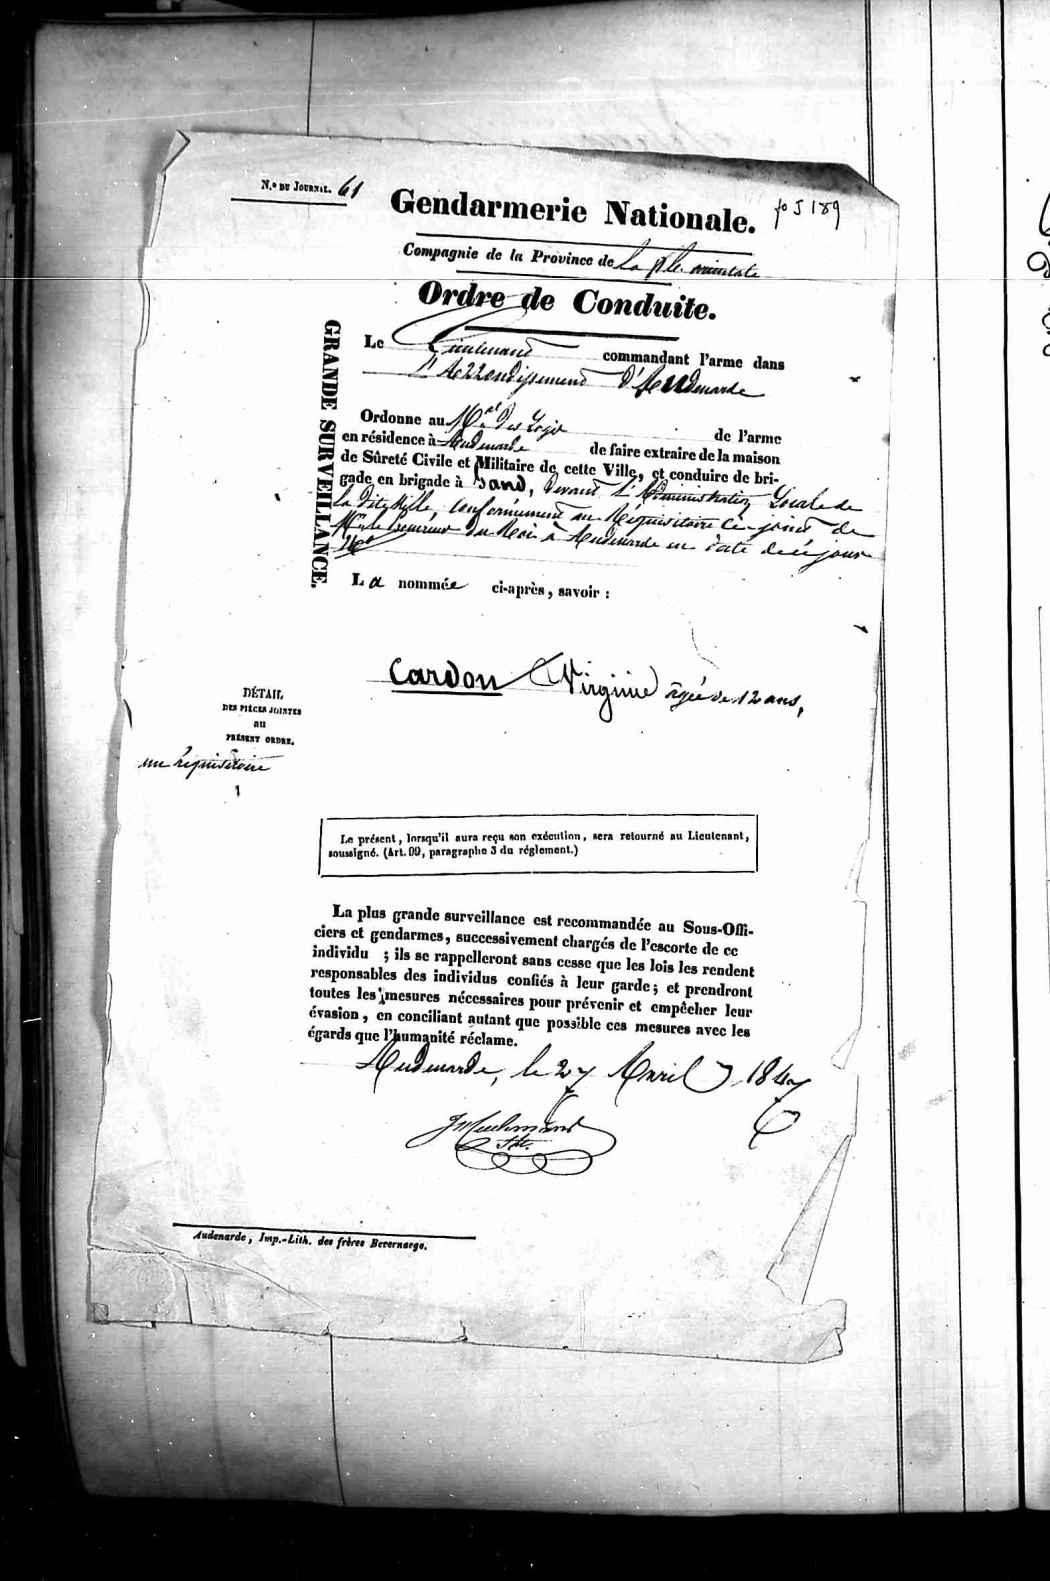 N.º DU JOURNAL. 61
fº 5 189
Gendarmerie Nationale.
Compagnie de la Province de la fl. orientale
Ordre de Conduite.
GRANDE SURVEILLANCE.
Le Lieutenant commandant l'arme dans
l'Arrondissement d'Audenarde
Ordonne au Mal des Logis de l'arme
en résidence à Audenarde de faire extraire de la maison
de Sûreté Civile et Militaire de cette Ville, et conduire de bri-
gade en brigade à Gand, devant l'Administration Locale de
la dite Ville, conformément au Réquisitoire ci-joint de
Mr le Procureur du Roi à Audenarde en date de ce jour
La nommée ci-après, savoir :
Cardon Virginie âgée de 12 ans,
DÉTAIL
DES PIÈCES JOINTES
au
PRÉSENT ORDRE.
un réquisitoire
1
Le présent, lorsqu'il aura reçu son exécution, sera retourné au Lieutenant,
soussigné. (Art. 99, paragraphe 3 du réglement.)
La plus grande surveillance est recommandée au Sous-Offi-
ciers et gendarmes, successivement chargés de l'escorte de ce
individu ; ils se rappelleront sans cesse que les lois les rendent
responsables des individus confiés à leur garde; et prendront
toutes les mesures nécessaires pour prévenir et empêcher leur
évasion, en conciliant autant que possible ces mesures avec les
égards que l'humanité réclame.
Audenarde, le 27 Avril 1847
Audenarde, Imp.-Lith. des frères Bevernaege.